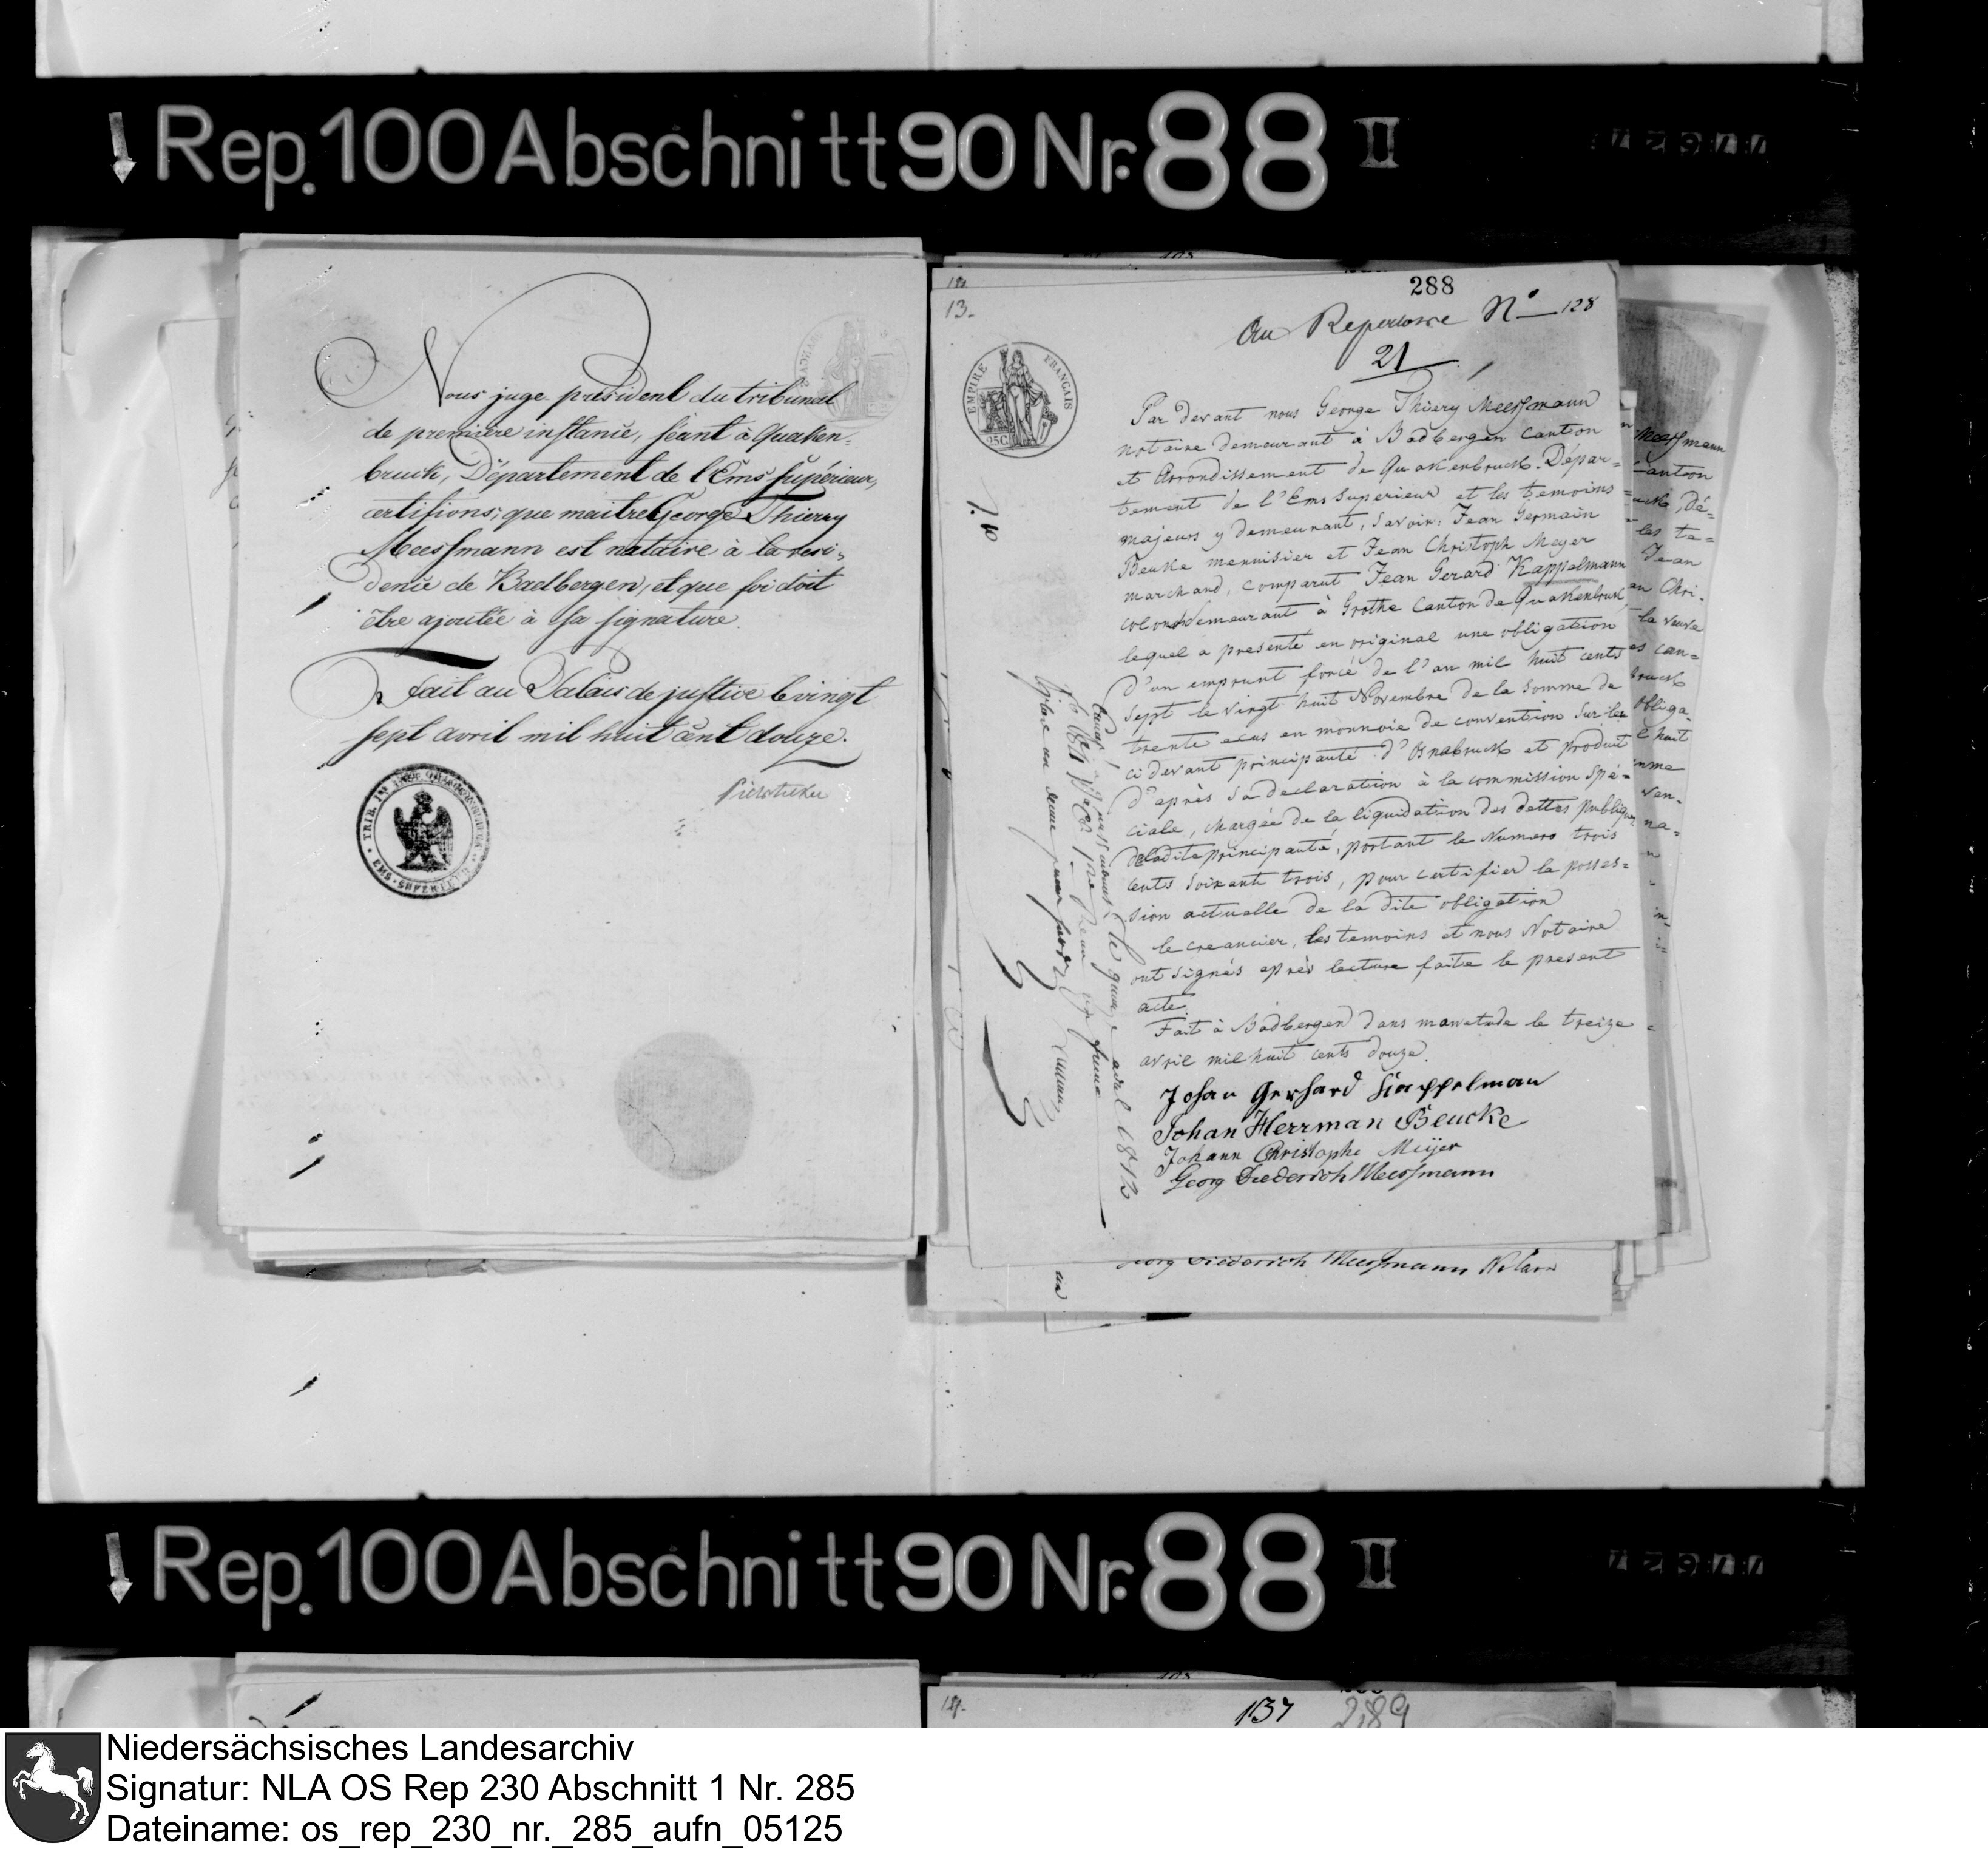 Rep. 100 Abschnitt 90 Nr. 88 II
Nous juge président du tribunal
de première instance, séant à Quaken-
bruck, Département de l'Ems supérieur,
certifions, que maitre George Thierry
Meessmann est notaire à la resi-
dence de Badbergen, et que foi doit
être ajoutée à sa signature.
Fait au Palais de justice le vingt
sept avril mil huit cent douze.
EMS-SUPERIEUR
13.
288
Au Repertoire N° 128
21
EMPIRE FRANÇAIS
25 C
Par devant nous George Thiery Meessmann
notaire demeurant à Badbergen Canton
et Arrondissement de Quakenbruck. Dépar=
tement de l'Ems Superieur et les temoins
majeurs y demeurant, Savoir: Jean Germain
Beuke menuisier et Jean Christoph Meyer
marchand, comparut Jean Gerard Kappelmann
colon demeurant à Grothe Canton de Quakenbruck
lequel a presenté en original une obligation
d'un emprunt forcé de l'an mil huit cents
sept le vingt huit Novembre de la Somme de
trente ecus en monnoie de convention Sur les
ci devant principauté d'Osnabruck et produit
d'après Sa declaration à la commission Spé=
ciale, chargée de la liquidation des dettes publiques
de la dite principauté, portant le Numero trois
cents Soixante trois, pour certifier la posses=
sion actuelle de la dite obligation
le creancier, les temoins et nous Notaire
ont signés après lecture faite le present
acte.
Fait à Badbergen dans mon etude le treize
avril mil huit cents douze.
Johan Gerhard Kappelman
Johan Herrman Beucke
Johann Christophe Meijer
Georg Diederich Meessmann
avril 1812
Meessmann
Canton
Dé=
les te=
Jean
an Chri.
la veuve
es can=
bruck
obliga-
e huit
Georg Diederich Meessmann Notair
Rep. 100 Abschnitt 90 Nr. 88 II
137
289
Niedersächsisches Landesarchiv
Signatur: NLA OS Rep 230 Abschnitt 1 Nr. 285
Dateiname: os_rep_230_nr._285_aufn_05125